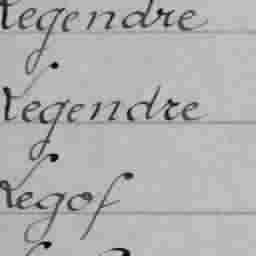 Legendre
Legendre
Legof